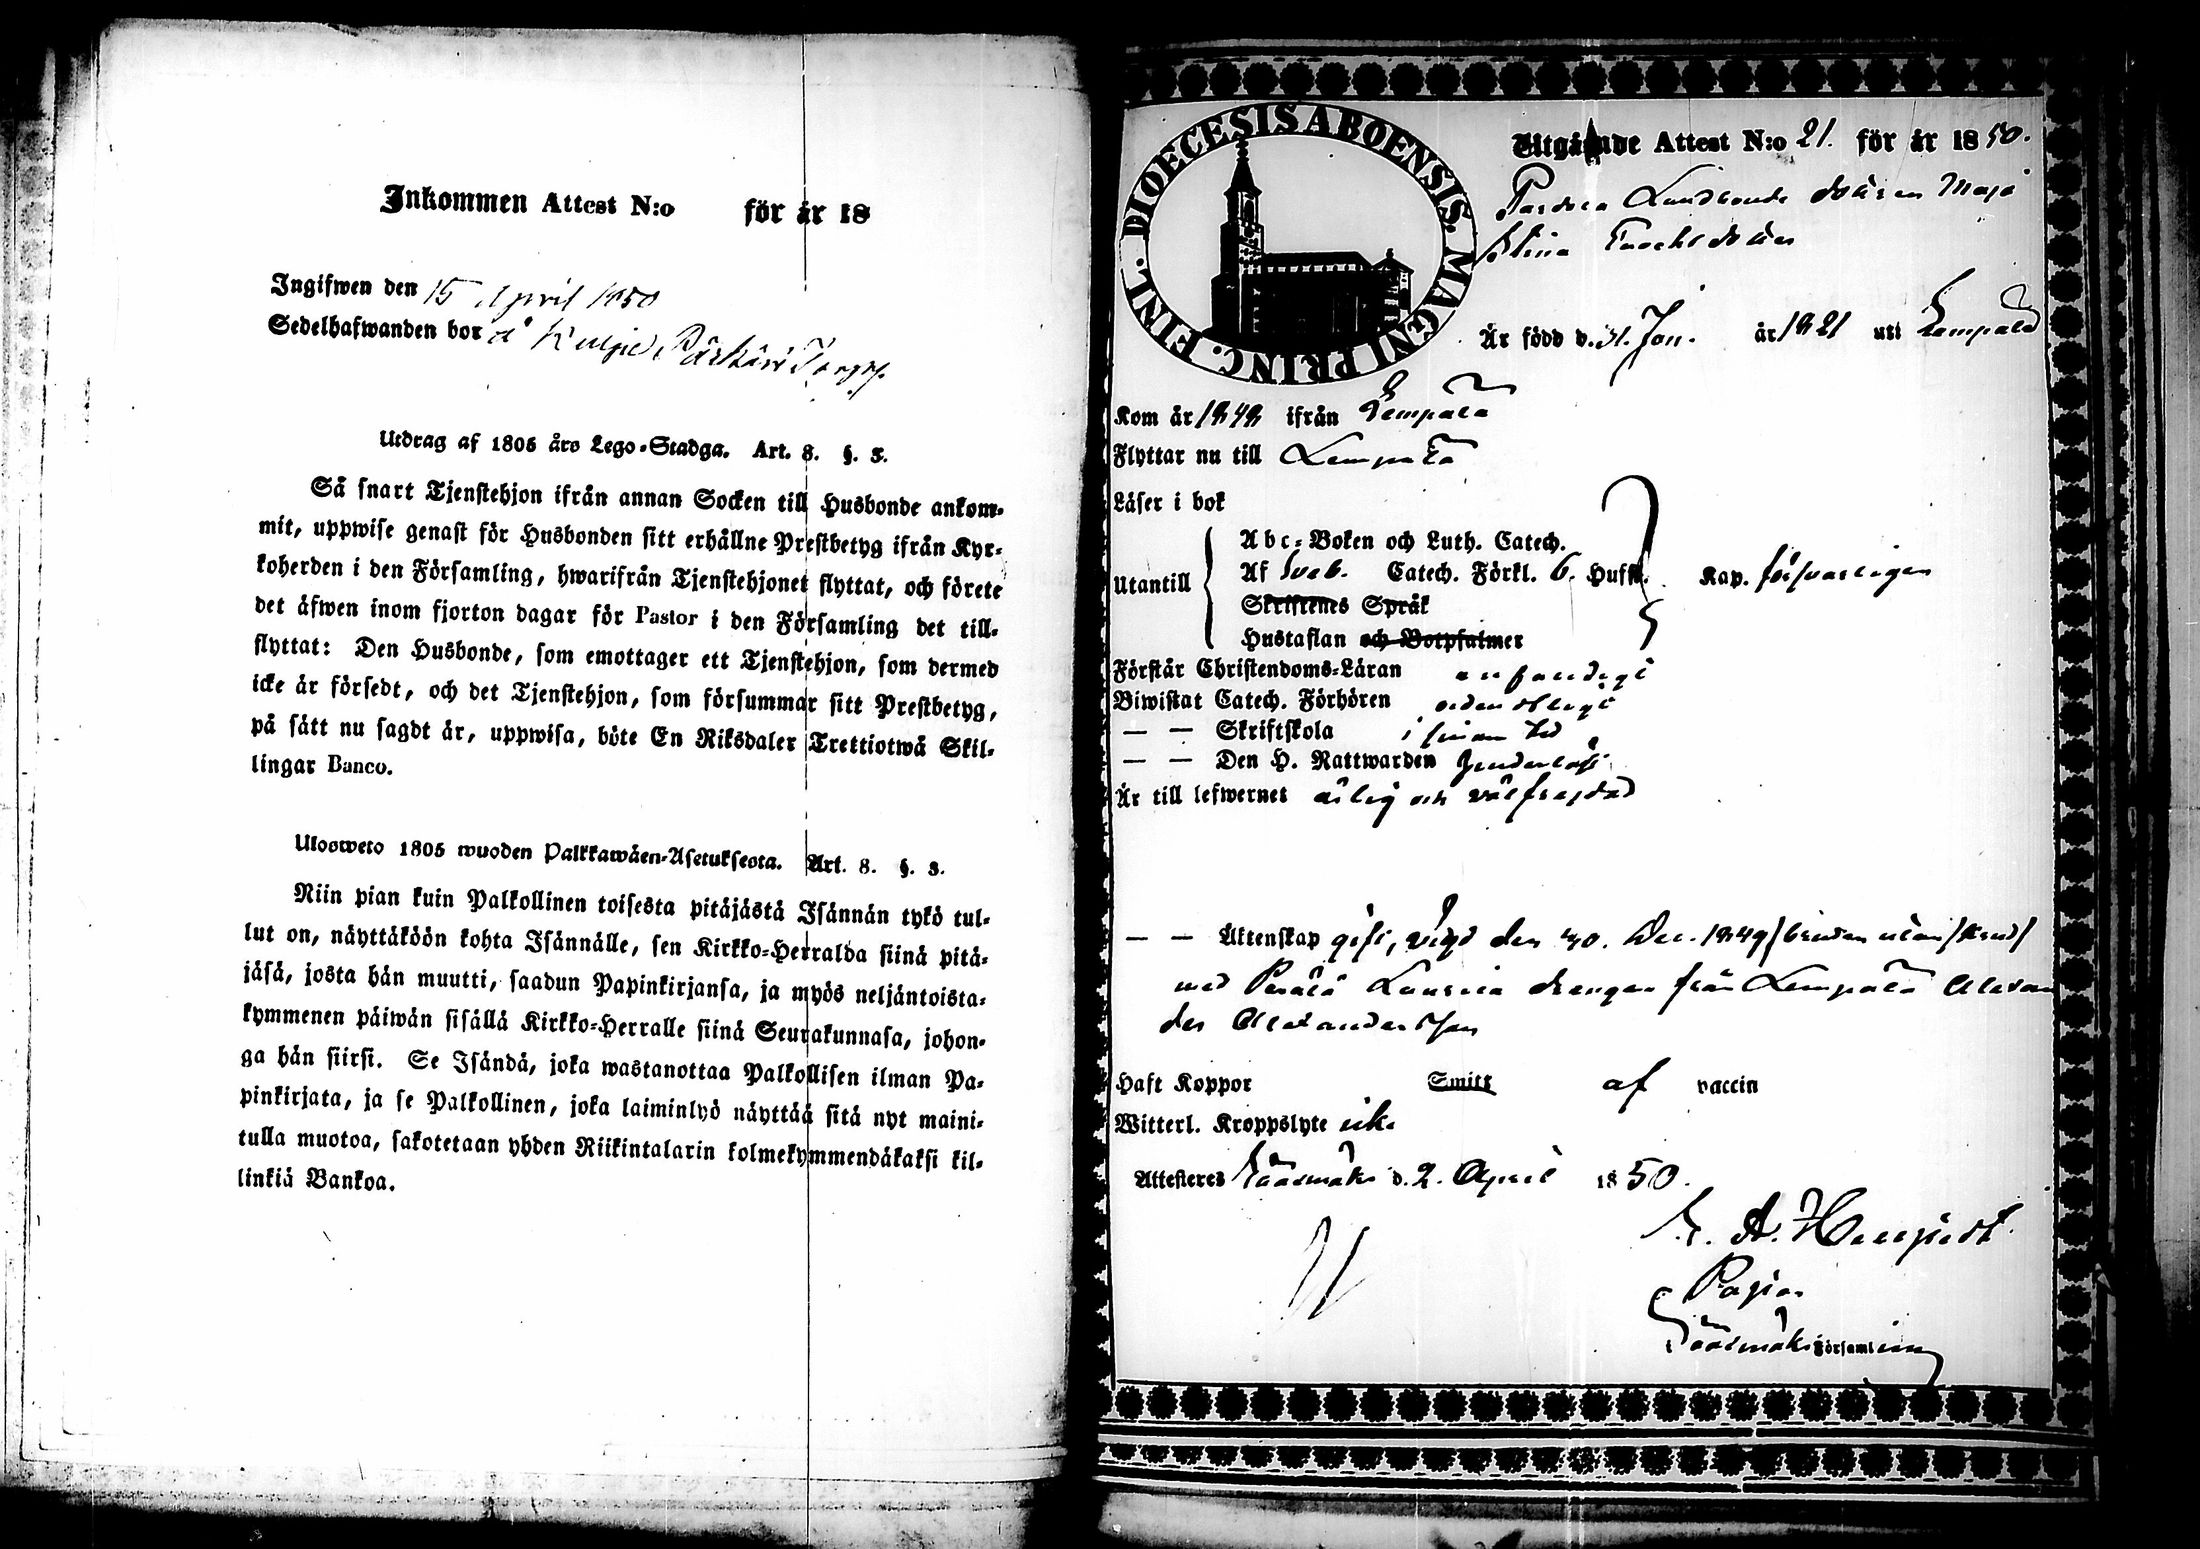 Inkommen Attest N:o för år 18
Ingifwen den 15 April 1850
Sedelhafwanden bor å
Utdrag af 1805 års Lego-Stadga. Art. 8. §. 3.
Så snart Tjenstehjon ifrån annan Socken till Husbonde ankom-
mit, uppwise genast för Husbonden sitt erhållne Prestbetyg ifrån Kyr-
koherden i den Församling, hwarifrån Tjenstehjonet flyttat, och förete
det äfwen inom fjorton dagar för Pastor i den Församling det till-
flyttat: Den Husbonde, som emottager ett Tjenstehjon, som dermed
icke är försedt, och det Tjenstehjon, som försummar sitt Prestbetyg,
på sätt nu sagdt är, uppwisa, böte En Riksdaler Trettiotwå Skil-
lingar Banco.
Ulosweto 1805 wuoden Palkkawäen-Asetuksesta. Art. 8. §. 3.
Niin pian kuin Palkollinen toisesta pitäjästä Isännän tykö tul-
lut on, näyttäköön kohta Isännälle, sen Kirkko-Herralda siinä pitä-
jäsä, josta hän muutti, saadun Papinkirjansa, ja myös neljäntoista-
kymmenen päiwän sisällä Kirkko-Herralle siinä Seurakunnasa, johon-
ga hän siirsi. Se Isändä, joka wastanottaa Palkollisen ilman Pa-
pinkirjata, ja se Palkollinen, joka laiminlyö näyttää sitä nyt maini-
tulla muotoa, sakotetaan yhden Riikintalarin kolmekymmendäkaksi kil-
linkiä Bankoa.
DIOECESIS ABOENSIS. MAGNI PRINC. FINL.
Utgående Attest N:o 21. för år 1850.
Landbonde dottren Maja
Stina Enochsdotter
Är född d. 31. Jan. år 1821 uti Lempälä
Kom år 1848 ifrån Lempälä
Flyttar nu till Lempälä
Läser i bok
Utantill
Abc-Boken och Luth. Catech.
Af Sveb. Catech. Förkl. 6. Hufst. Kap. försvarligen
Skriftenes Språk
Hustaflan och Botpsalmer
Förstår Christendoms-Läran enfaldigt
Biwistat Catech. Förhören ordentligt
— — Skriftskola i sinom tid
— — Den H. Nattwarden
Är till lefwernet ärlig och välfrejdad
— — Äktenskap gift, vigd den 30. Dec. 1849
med Lauria drengen från Lempälä Alexan
der Alexandersson
Haft Koppor Smitt af vaccin
Witterl. Kroppslyte ick.
Attesteres Sääsmäki d. 2. April 1850.
Pastor
Sääsmäki Församling